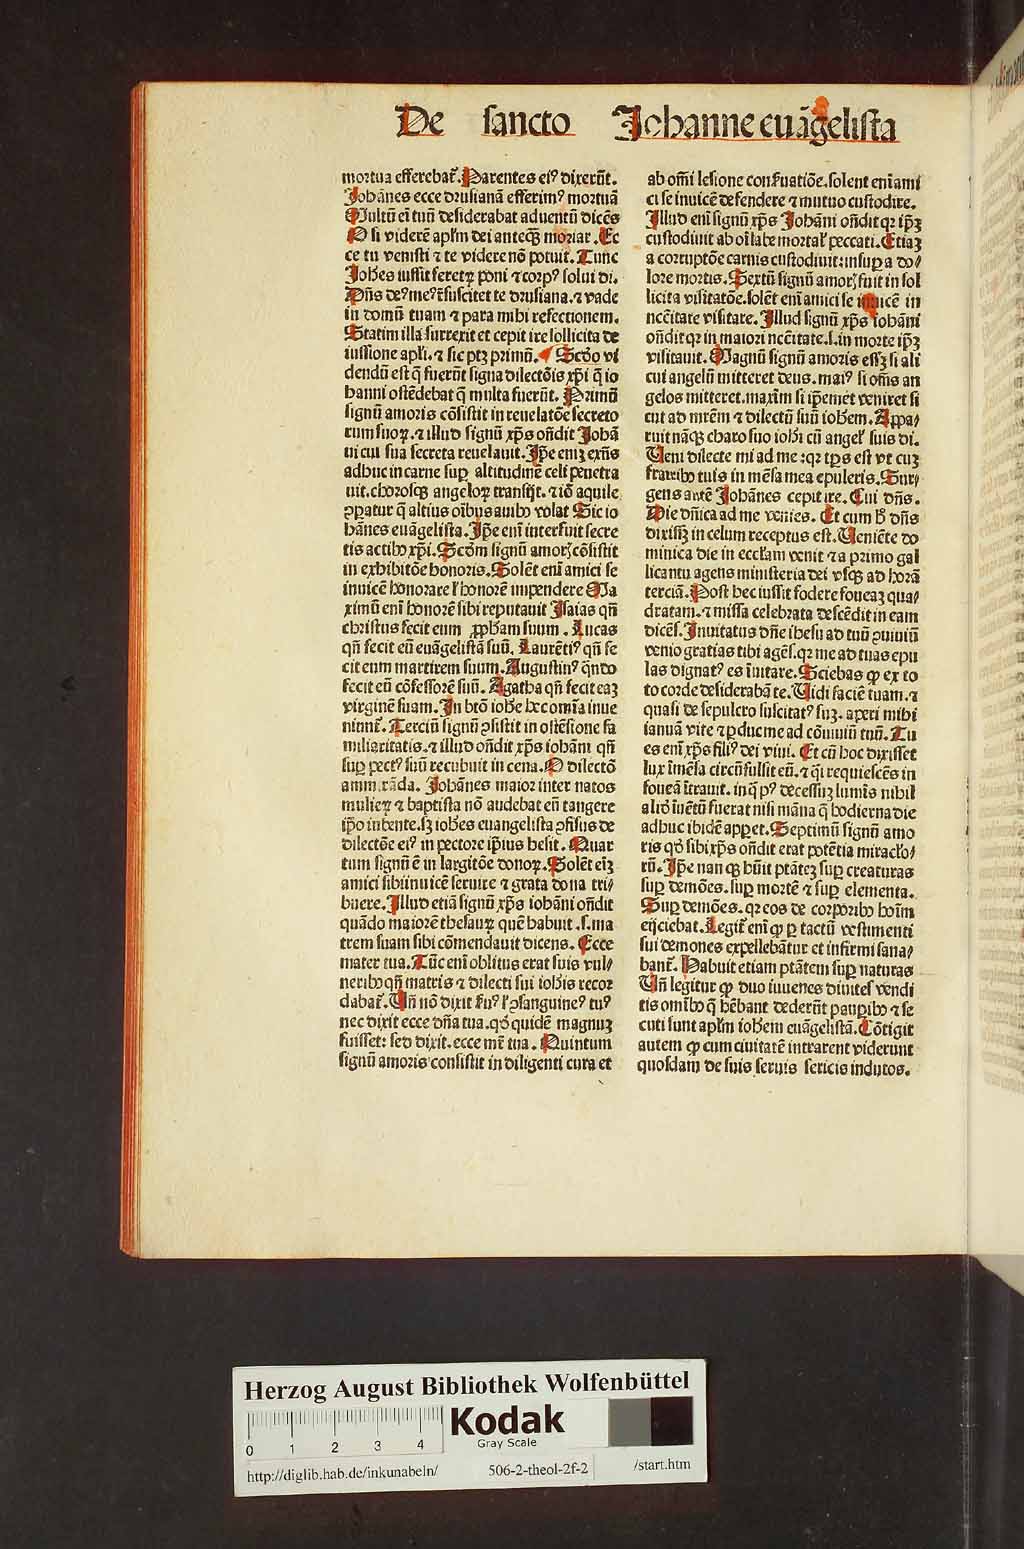 De sancto Johanne euāgelista
mortua efferebat̃. Parentes eiꝰ dixerūt.
Johānes ecce drusianā efferimꝰ mortuā
Multū eī tuū desiderabat aduentū dicēs
O si viderē apl̃m dei anteqꝫ moriar. Ec
ce tu venisti ⁊ te videre nō potuit. Tunc
Joh̃es iussit feretꝝ poni ⁊ corpꝰ solui di.
Dn̄s deꝰ meꝰ t̃ suscitet te drusiana. ⁊ vade
in domū tuam ⁊ para mihi refectionem.
Statim illa surrexit et cepit ire sollicita de
iussione apl̃i. ⁊ sic ptꝫ primū. Scd̃o vi
dendū est q̄ fuerūt signa dilectōis xp̄i q̄ io
hanni ostēdebat q̄ multa fuerūt. Primū
signū amoris cōsistit in reuelatōe secreto
rum suoꝝ. ⁊ illud signū xp̄s ondit Johā
ni cui sua secreta reuelauit. Ip̄e eniꝫ exn̄s
adhuc in carne suꝑ altitudinē celi penetra
uit. chorosqꝫ angeloꝝ transijt. ⁊ iō aquile
ꝯꝑatur q̄ altius oībus auibꝰ volat Sic io
hānes euāgelista. Ip̄e enī interfuit secre
tis actibꝰ xp̄i. Scd̃m signū amoꝝ cōsistit
in exhibitōe honoris. Solēt enī amici se
inuicē honorare l̃ honorē impendere Ma
ximū enī honorē sibi reputauit Isaias qn̄
christus fecit eum ꝓph̃am suum. Lucas
qn̄ fecit eū euāgelistā suū. Laurētiꝰ qn̄ fe
cit eum martirem suum. Augustinꝰ qn̄do
fecit eū cōfessorē suū. Agatha qn̄ fecit eaꝫ
virginē suam. In btō ioh̃e hec om̄ia inue
niunt̃. Terciū signū ꝯsistit in ostēsione fa
miliaritatis. ⁊ illud ondit xp̄s iohāni qn̄
suꝑ pectꝰ suū recubuit in cena. O dilectō
amm̄ rāda. Johānes maior inter natos
mulieꝝ ⁊ baptista nō audebat eū tangere
ip̄o iubente. sꝫ ioh̃es euangelista ꝯfisus de
dilectōe eiꝰ in pectore ip̄ius hesit. Quar
tum signū ē in largitōe donoꝝ. Solēt eīꝫ
amici sibiinuicē seruire ⁊ grata dona tri⸗
buere. Illud etiā signū xp̄s iohāni ondit
quādo maiorē thesauꝝ quē habuit. s. ma
trem suam sibi cōmendauit dicens. Ecce
mater tua. Tūc enī oblitus erat suis vul⸗
neribꝰ qn̄ matris ⁊ dilecti sui ioh̃is recor
dabat̃. Vn̄ nō dixit suꝰ l̃ ꝯsanguineꝰ tuꝰ
nec dixit ecce dn̄a tua. qd̓ quidē magnuꝫ
fuisset: sed dixit. ecce mr̄ tua. Quintum
signū amoris consistit in diligenti cura et
ab om̄i lesione conseruatiōe. solent enī ami
ci se inuicē defendere ⁊ mutuo custodire.
Illud enī signū xp̄s Johāni ondit qꝛ ip̄ꝫ
custodiuit ab oī labe mortal̃ peccati. Etiaꝫ
a corruptōe carnis custodiuit: insuꝑ a do⸗
lore mortis. Sextū signū amoꝝ fuit in sol
licita visitatōe. solēt enī amici se inuicē in
nccītate visitare. Illud signū xp̄s iohāni
ondit qꝛ in maiori nccītate. s. in morte ip̄ꝫ
visitauit. Magnū signū amoris essꝫ si ali
cui angelū mitteret deus. maiꝰ si om̄s an
gelos mitteret. maxīm si ip̄emet veniret si
cut ad mrēm ⁊ dilectū suū ioh̃em. Appa⸗
ruit nāqꝫ charo suo ioh̃i cū angel̃ suis di.
Veni dilecte mi ad me: qꝛ tp̄s est vt cuꝫ
fratribꝰ tuis in mēsa mea epuleris. Sur⸗
gens autē Johānes cepit ire. Cui dn̄s.
Die dn̄ica ad me venies. Et cum h̓ dn̄s
dixissꝫ in celum receptus est. Veniēte do
minica die in eccl̃iam venit ⁊ a primo gal
licantu agens ministeria dei vsqꝫ ad horā
terciā. Post hec iussit fodere foueaꝫ qua⸗
dratam. ⁊ missa celebrata descēdit in eam
dicēs. Inuitatus dn̄e ihesu ad tuū ꝯuiuiū
venio gratias tibi agēs. qꝛ me ad tuas epu
las dignatꝰ es īuitare. Sciebas ꝙ ex to
to corde desiderabā te. Vidi faciē tuam. ⁊
quasi de sepulcro suscitatꝰ suꝫ. aperi mihi
ianuā vite ⁊ ꝑduc me ad cōuiuiū tuū. Tu
es enī xp̄s filiꝰ dei viui. Et cū hoc dixisset
lux īmēsa circūfulsit eū. ⁊ q̄i requiescēs in
foueā ītrauit. in q̄ pꝰ decessuꝫ lumīs nihil
aliđ īuētū fuerat nisi māna q̄ hodierna die
adhuc ibidē apꝑet. Septimū signū amo
ris qđ sibi xp̄s ondit erat potētia miracl̃o⸗
rū. Ip̄e nanqꝫ hūit ptātēꝫ suꝑ creaturas
suꝑ demōes. suꝑ mortē ⁊ suꝑ elementa.
Suꝑ demōes. qꝛ eos de corporibꝰ hoīm
eijciebat. Legit̃ enī ꝙ ꝑ tactū vestimenti
sui demones expellebātur et infirmi sana⸗
bant̃. Habuit etiam ptātem suꝑ naturas
Vn̄ legitur ꝙ duo iuuenes diuites vendi
tis om̄ibꝰ q̄ hēbant dederūt pauꝑibꝰ ⁊ se
cuti sunt apl̃m ioh̃em euāgelistā. Cōtigit
autem ꝙ cum ciuitatē intrarent viderunt
quosdam de suis seruis sericis indutos.
Herzog August Bibliothek Wolfenbüttel
0 1 2 3 4
Kodak
Gray Scale
http://diglib.hab.de/inkunabeln/ 506-2-theol-2f-2 /start.htm